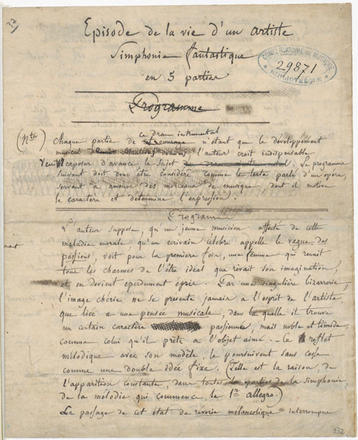 Episode de la vie d'un artiste
Simphonie fantastique
en 5 parties
29871
Programme
(Nta)
ce drame instrumental
Chaque partie de n'étant que le développement
musical l'auteur croit indispensable
d'en exposer d'avance le sujet. Le programme
suivant doit donc être considéré comme le texte parlé d'un opéra,
servant à amener des morceaux de musique dont il motive
le caractère et détermine l'expression.
Programme
L'auteur suppose qu'un jeune musicien affecté de cette
maladie morale qu'un écrivain célèbre appelle le vague des
passions, voit pour la première fois, une femme qui réunit
tous les charmes de l'être idéal que rêvait son imagination,
et en devient éperduement épris. Par une singulière bizarrerie,
l'image chérie ne se présente jamais à l'esprit de l'artiste
que liée à une pensée musicale, dans laquelle il trouve
un certain caractère passionné, mais noble et timide,
comme celui qu'il prête à l'objet aimé. Le reflet
mélodique avec son modèle le poursuivent sans cesse
comme une double idée fixe. Telle est la raison, de
l'apparition constante, dans toutes les parties de la simphonie
de la mélodie qui commence le 1er allegro.
Le passage de cet état de rêverie mélancolique interrompue